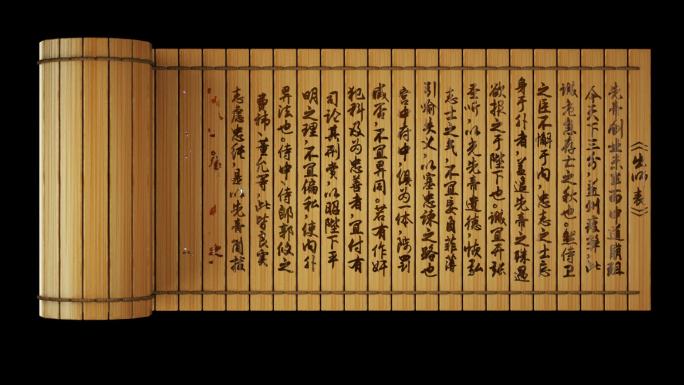 《出师表》
先帝创业未半而中道崩殂
今天下三分，益州疲弊，此
诚危急存亡之秋也。然侍卫
之臣不懈于内，忠志之士忘
身于外者，盖追先帝之殊遇
欲报之于陛下也。诚宜开张
圣听，以光先帝遗德，恢弘
志士之气，不宜妄自菲薄
引喻失义，以塞忠谏之路也
宫中府中，俱为一体，陟罚
臧否，不宜异同。若有作奸
犯科及为忠善者，宜付有
司论其刑赏，以昭陛下平
明之理，不宜偏私，使内外
异法也。侍中，侍郎郭攸之
费祎，董允等，此皆良实
志虑忠纯，是以先帝简拔